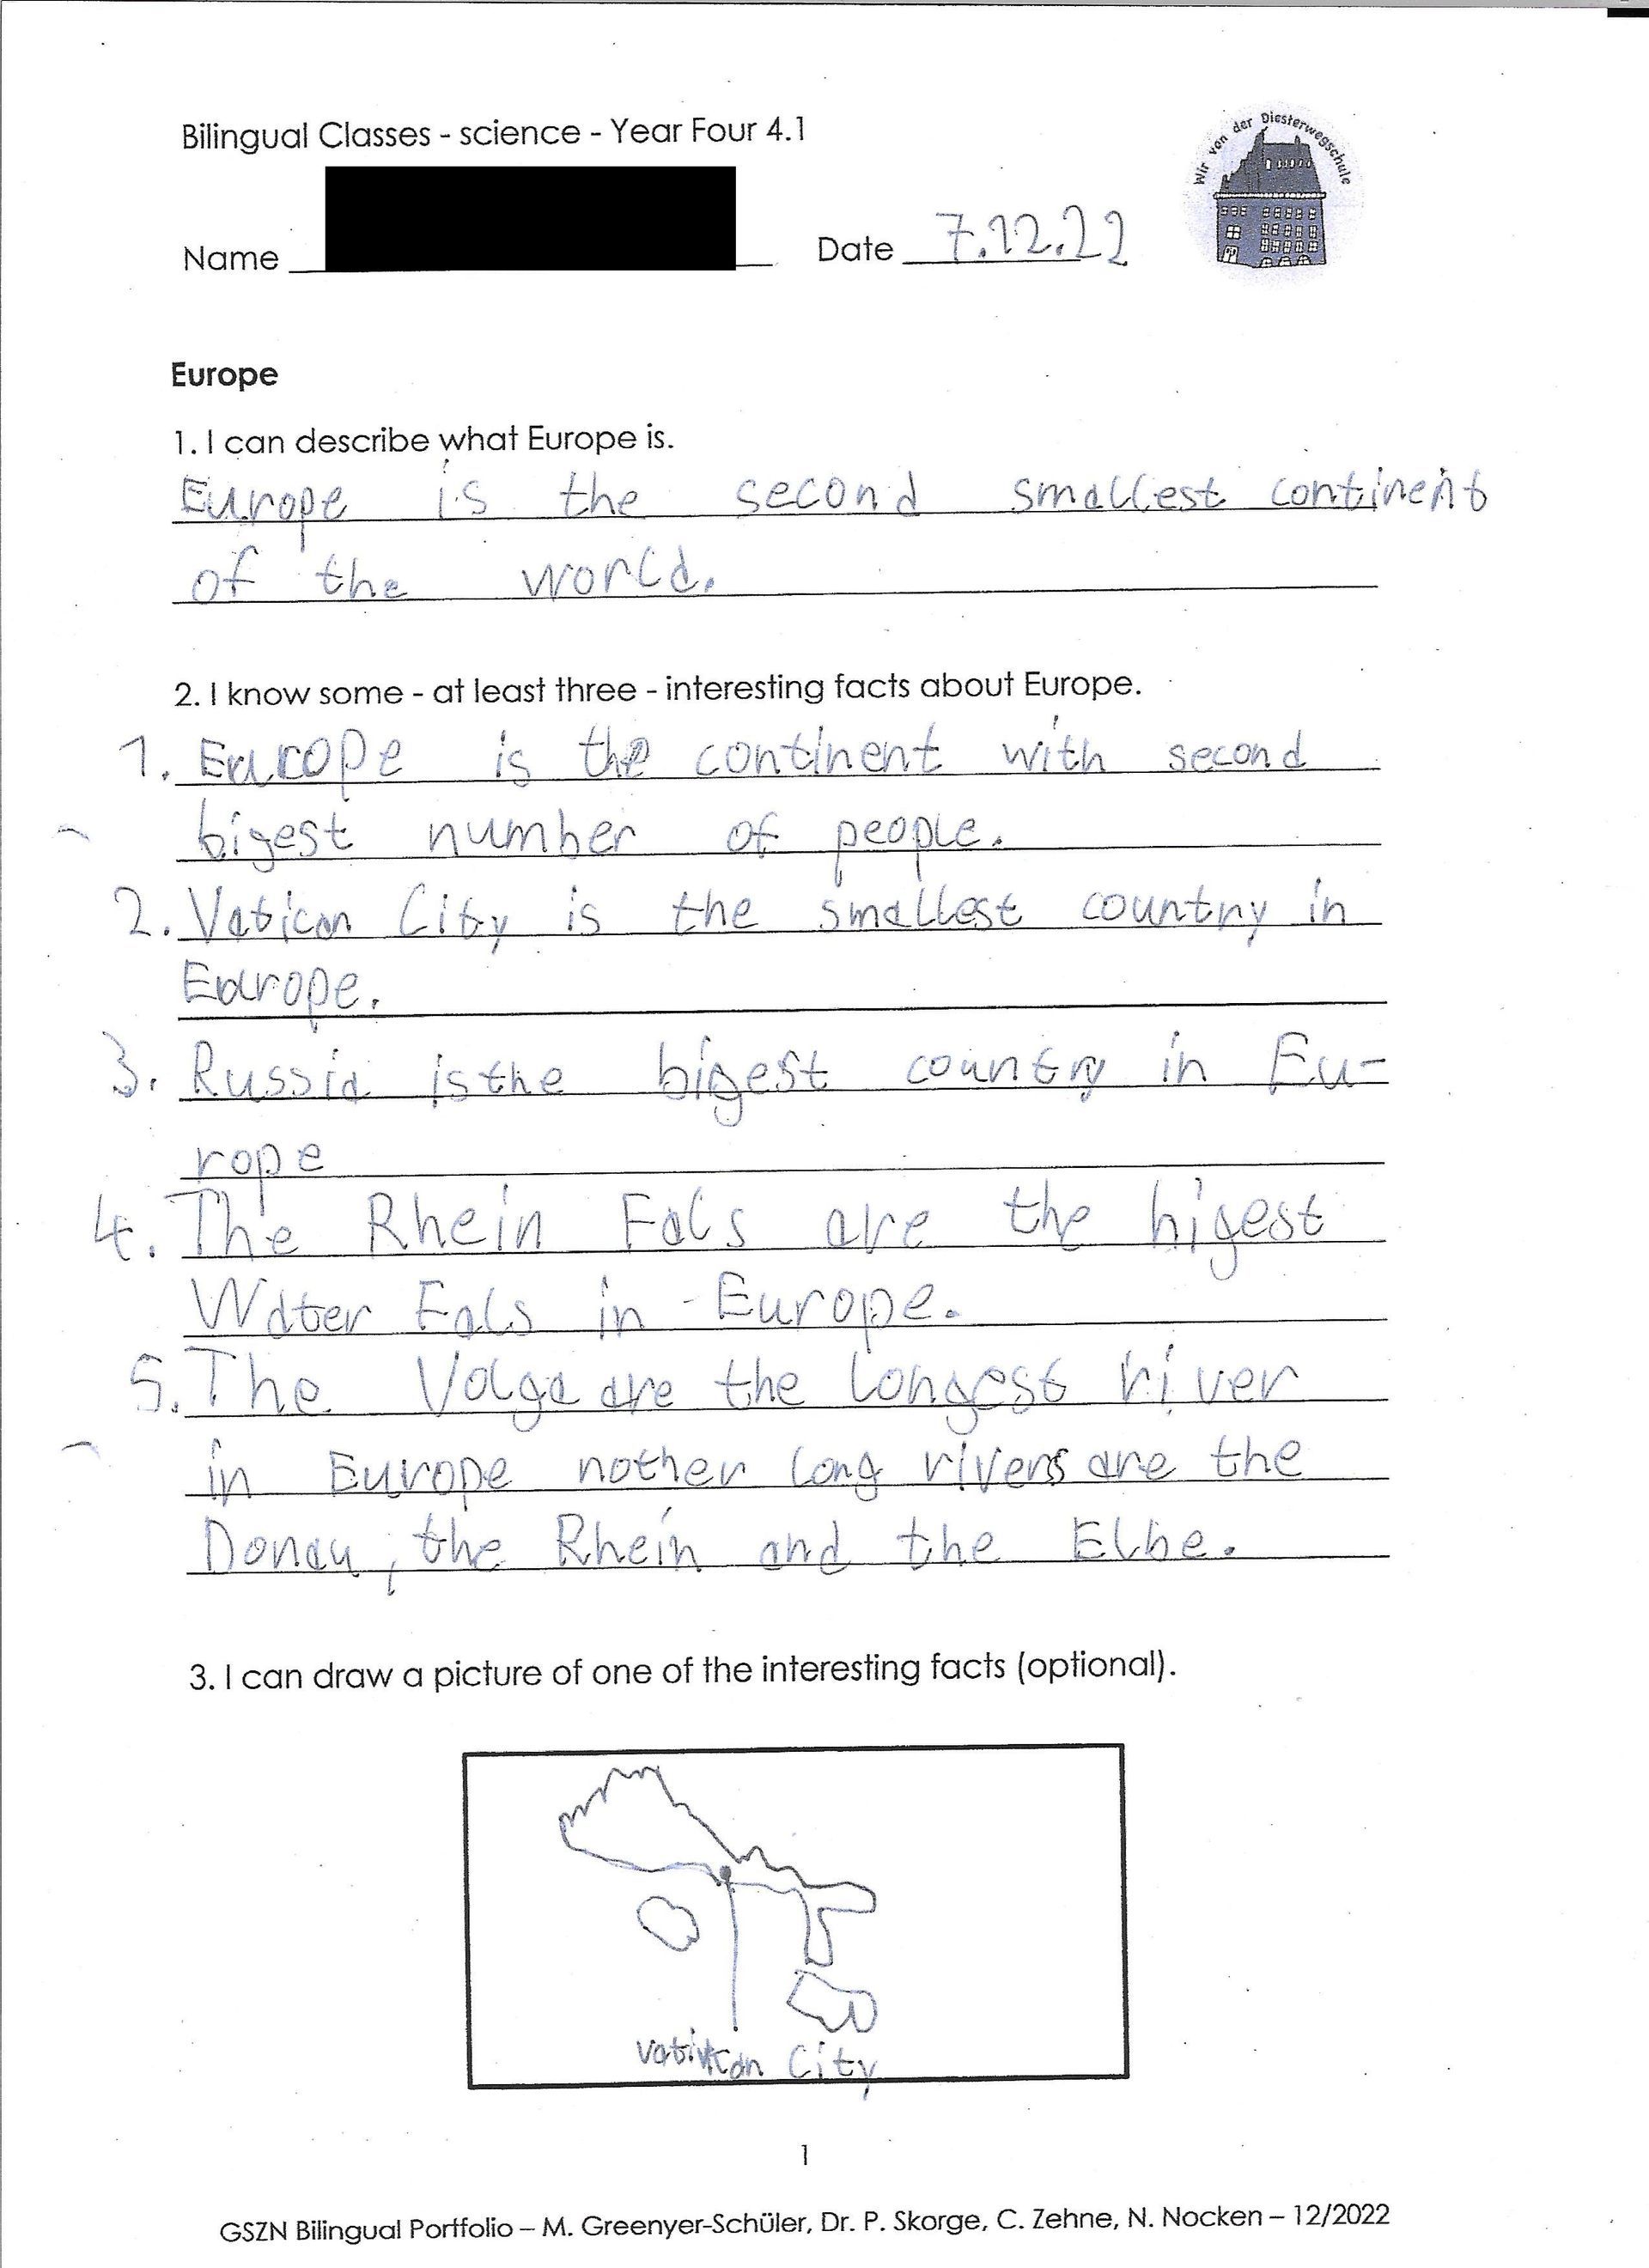 Bilingual Classes - science - Year Four 4.1
Wir von der Diesterwegschule
Name
Date 7.12.22
Europe
1. I can describe what Europe is.
Europe is the second smallest continent
of the world.
2. I know some - at least three - interesting facts about Europe.
1. Europe is the continent with second
bigest number of people.
2. Vatican City is the smallest country in
Europe.
3. Russia is the bigest country in Eu-
rope
4. The Rhein Fals are the higest
Water Fals in Europe.
5. The Volga are the longest river
in Europe nother long rivers are the
Donau, the Rhein and the Elbe.
3. I can draw a picture of one of the interesting facts (optional).
City
1
GSZN Bilingual Portfolio – M. Greenyer-Schüler, Dr. P. Skorge, C. Zehne, N. Nocken – 12/2022